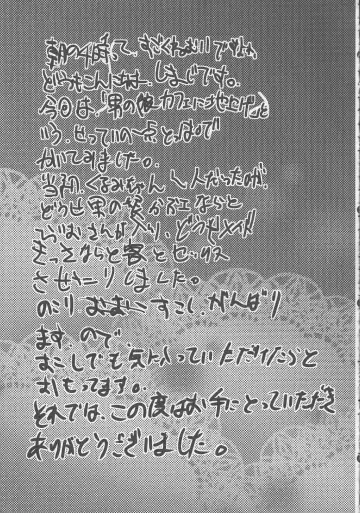 朝の4時って、すごくねむいですね。
どうもこんにちは、しまじです。
今回は「男の娘カフェに
いう、
かいてみました。
当初、くるみちゃん1人だったのが、
どうせ男の娘カフェならと
さんが入り、どうせメイド
きっさなら客とセックス
させたりしました。
のこり すこし、がんばり
ます。ので、
すこしでも気に入っていただけたらと
おもってます。
それでは、この度はお手にとっていただき
ありがとうございました。